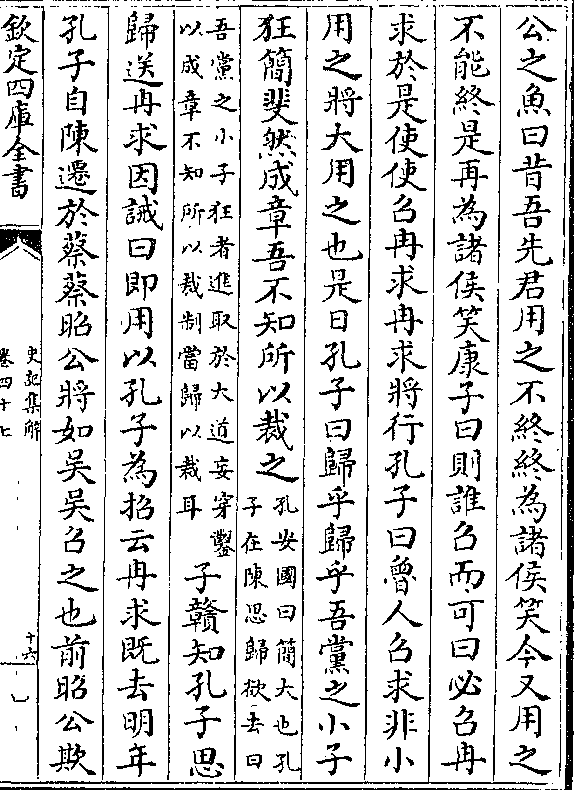 公之魚曰昔吾先君用之不終終為諸侯笑今又用之
不能終是再為諸侯笑康子曰則誰召而可曰必召冉
求於是使使召冉求冉求將行孔子曰魯人召求非小
用之將大用之也是日孔子曰歸乎歸乎吾黨之小子
狂簡斐然成章吾不知所以裁之
孔安國曰簡大也孔
子在陳思歸欲去曰
吾黨之小子狂者進取於大道妄穿鑿
以成章不知所以裁制當歸以裁耳
子贛知孔子思
歸送冉求因誡曰即用以孔子為招云冉求既去明年
孔子自陳遷於蔡蔡昭公將如吳吳召之也前昭公欺
欽定四庫全書
史記集解
卷四十七
十六